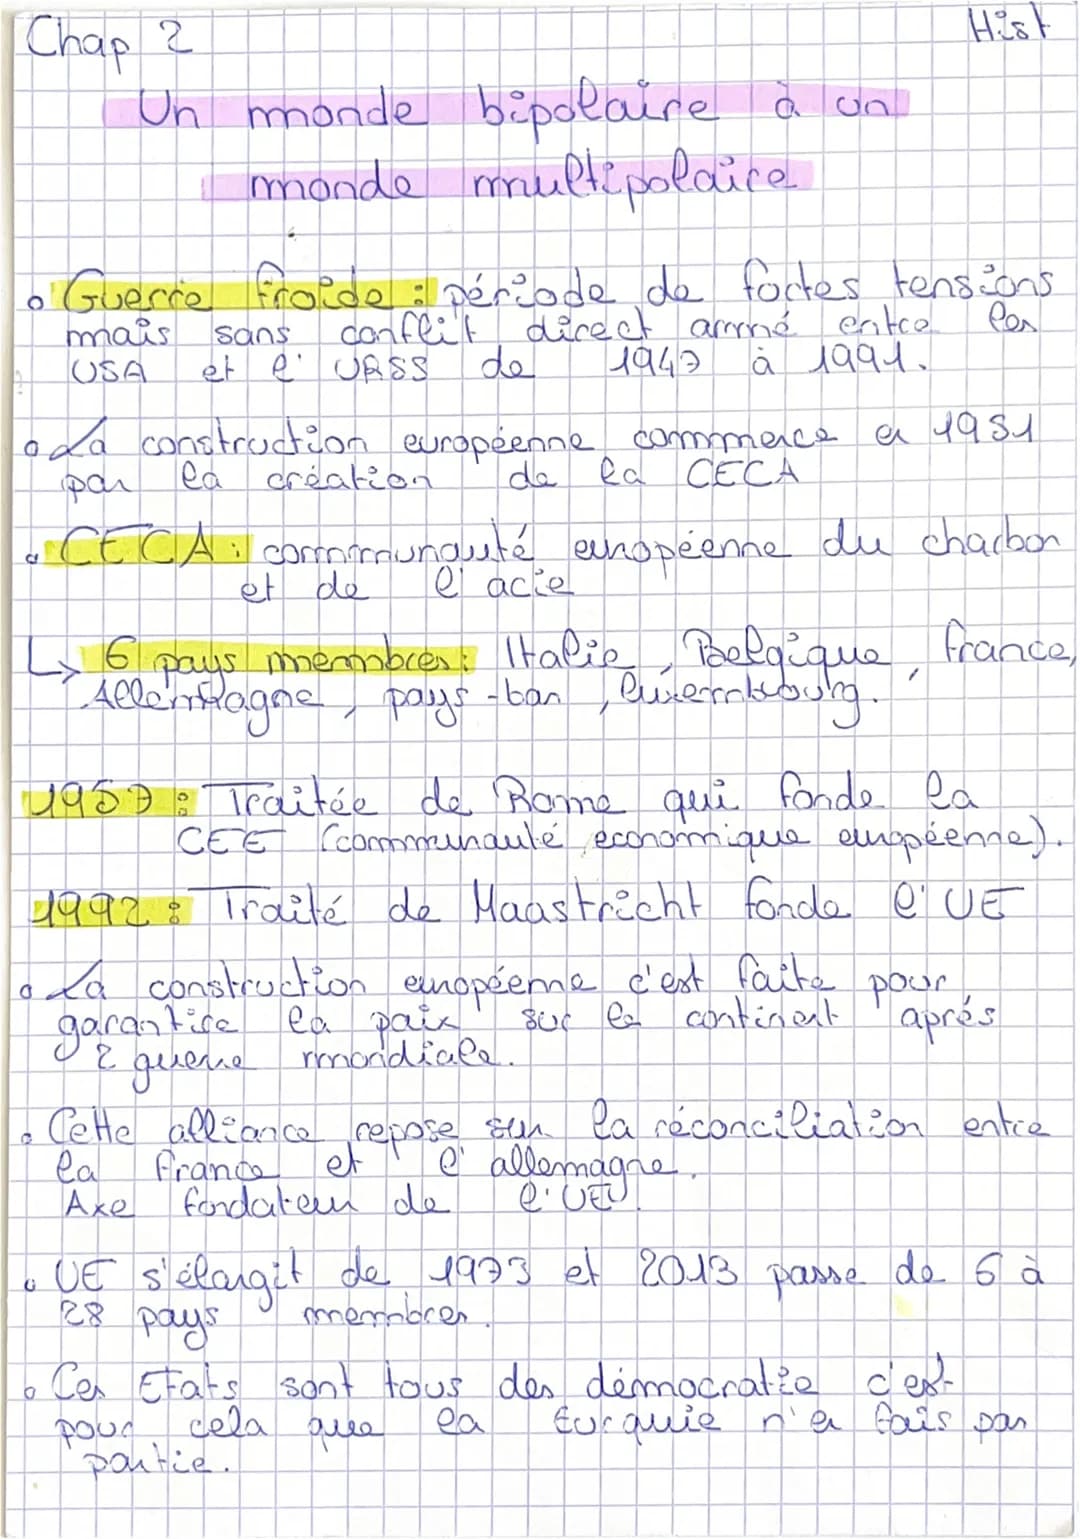 Chap 2
Hist
Un monde bipolaire à un
monde multipolaire
Guerre froide : période de fortes tensions
mais sans conflit direct armé entre les
USA et l'URSS de 1947 à 1991.
La construction européenne commence a 1951
par la création de la CECA
CECA : communauté européenne du charbon
et de l'acie
↳ 6 pays membres : Italie, Belgique, france,
Allemagne, pays-bas, luxembourg.
1957 : Traitée de Rome qui fonde la
CEE (communauté economique européenne).
1992 : Traité de Maastricht fonde l'UE
La construction européenne c'est faite pour
garantire la paix sur le continent aprés
2 guerre mondiale.
Cette alliance repose sur la réconciliation entre
la france et l'allemagne.
Axe fondateur de l'UE.
UE s'élargit de 1973 et 2013 passe de 6 à
28 pays membres.
Ces Etats sont tous des démocratie c'est
pour cela que la turquie n'a fais pas
partie.